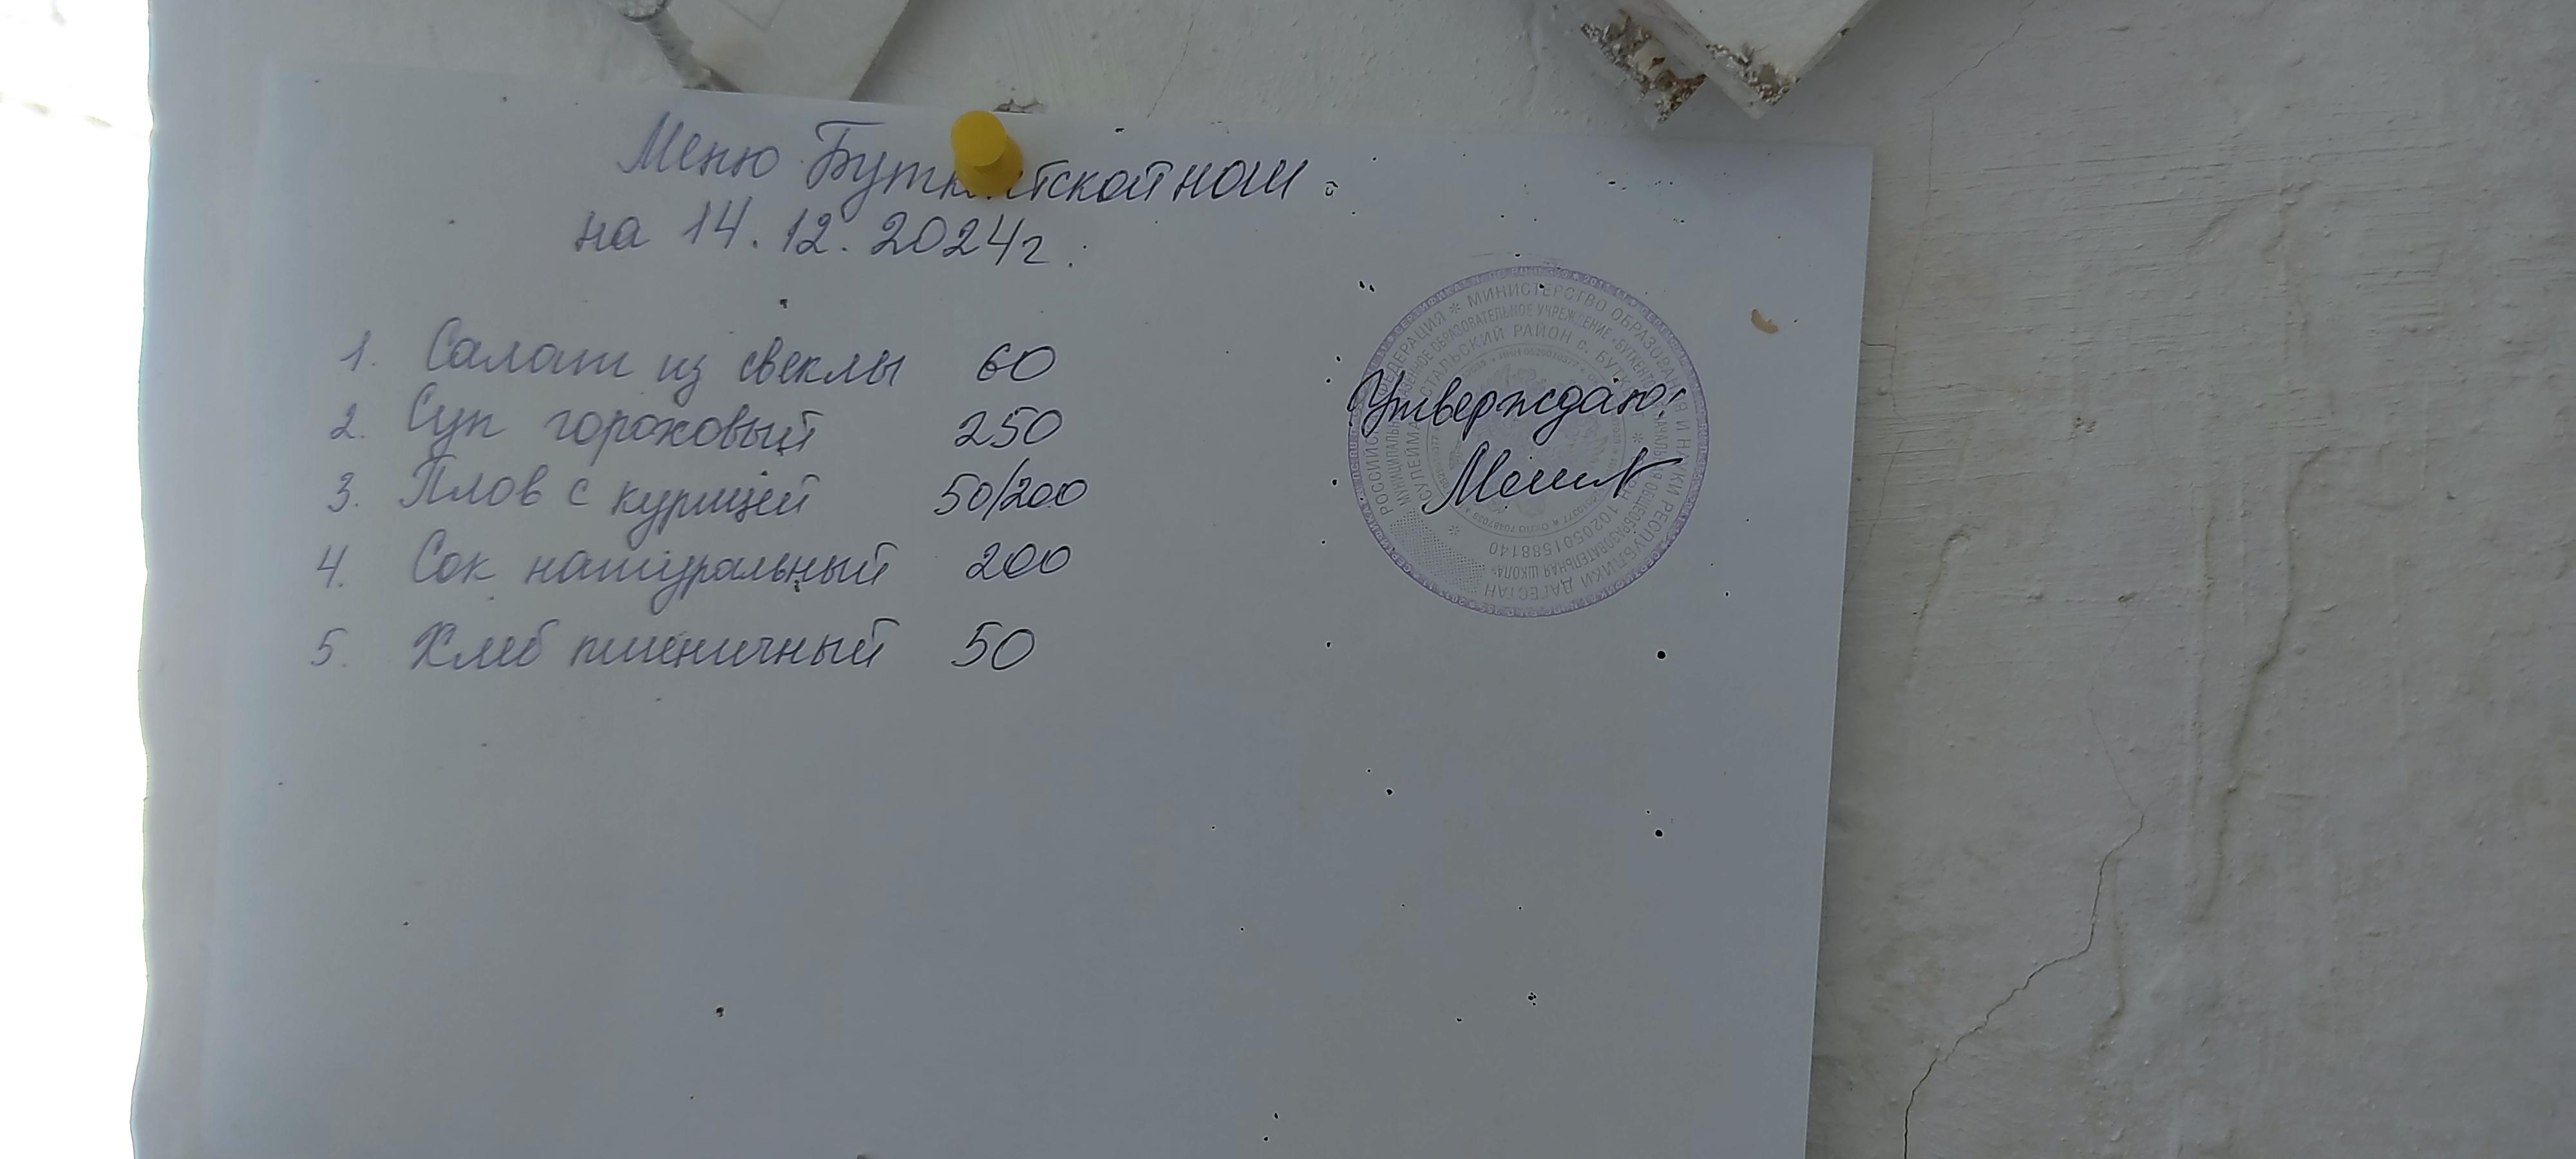 Меню Буткентской НОШ.
на 14.12.2024г.
1. Салат из свеклы 60
2. Суп гороховый 250
3. Плов с курицей 50/200
4. Сок натуральный 200
5. Хлеб пшеничный 50
Утверждаю:
РОССИЙСКАЯ ФЕДЕРАЦИЯ * МИНИСТЕРСТВО ОБРАЗОВАНИЯ И НАУКИ РЕСПУБЛИКИ ДАГЕСТАН
МУНИЦИПАЛЬНОЕ КАЗЕННОЕ ОБРАЗОВАТЕЛЬНОЕ УЧРЕЖДЕНИЕ "БУТКЕНТСКАЯ НАЧАЛЬНАЯ ОБЩЕОБРАЗОВАТЕЛЬНАЯ ШКОЛА"
СУЛЕЙМАН-СТАЛЬСКИЙ РАЙОН с. БУТКЕНТ * ОГРН 1020501588140 *